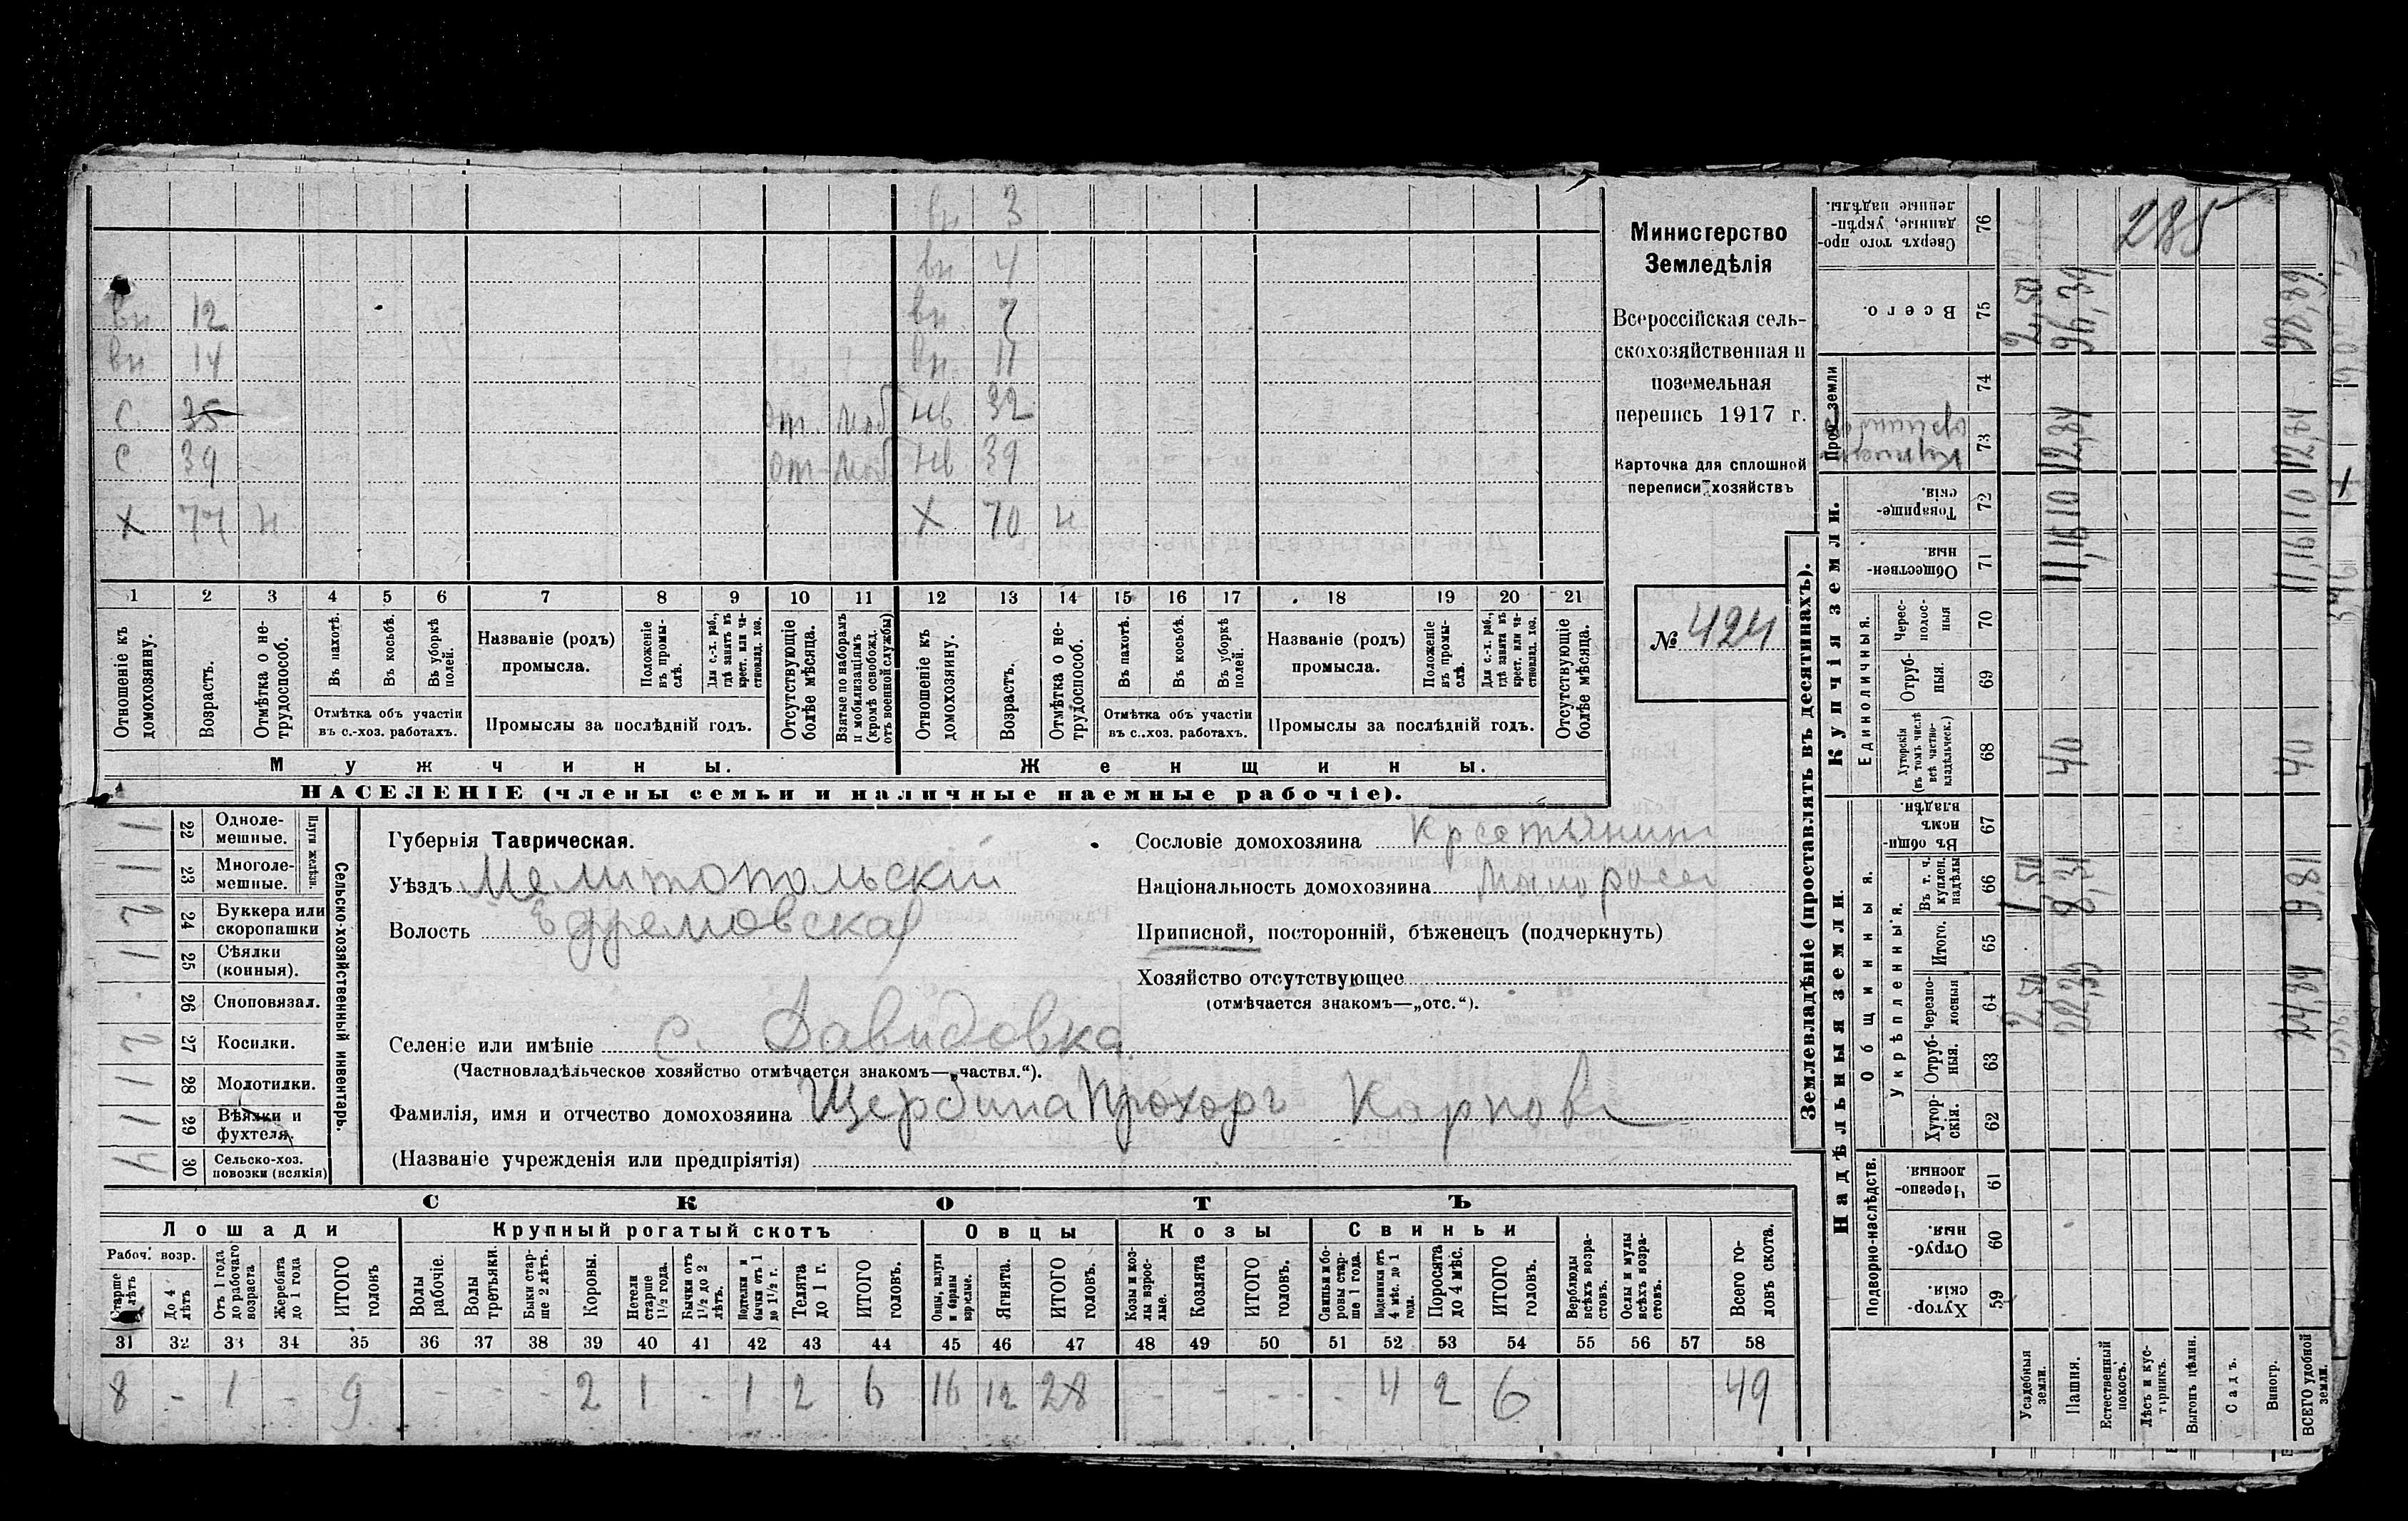 вн 3
вн 4
вн 12 вн 7
вн 14 вн 11
С 35 От моб нв 32
С 39 От моб нв 39
Х 77 н Х 70 н
1 2 3 4 5 6 7 8 9 10 11 12 13 14 15 16 17 18 19 20 21
Отношеніе къ домохозяину.
Возрастъ.
Отмѣтка о нетрудоспособ.
Въ пахотѣ.
Въ косьбѣ.
Въ уборкѣ полей.
Отмѣтка объ участіи въ с.-хоз. работахъ.
Названіе (родъ) промысла.
Положеніе въ промыслѣ.
Для с.-х. раб., гдѣ занятъ въ крест. или частновлад. хоз.
Промыслы за послѣдній годъ.
Отсутствующіе болѣе мѣсяца.
Взятые по наборамъ и мобилизаціямъ (кромѣ освобожд. отъ военной службы)
Отношеніе къ домохозяину.
Возрастъ.
Отмѣтка о нетрудоспособ.
Въ пахотѣ.
Въ косьбѣ.
Въ уборкѣ полей.
Отмѣтка объ участіи въ с..хоз. работахъ.
Названіе (родъ) промысла.
Положеніе въ промыслѣ.
Для с.-х. раб., гдѣ занята въ крест. или частновлад. хоз.
Промыслы за послѣдній годъ.
Отсутствующіе болѣе мѣсяца.
Мужчины. Женщины.
НАСЕЛЕНІЕ (члены семьи и наличные наемные рабочіе).
Министерство
Земледѣлія
Всероссійская сель-
скохозяйственная и
поземельная
перепись 1917 г.
Карточка для сплошной
переписи хозяйствъ
№ 424
Сельско-хозяйственный инвентарь.
Плуги желѣзн.
1 22 Однолемешные.
1 23 Многолемешные.
2 24 Буккера или скоропашки
1 25 Сѣялки (конныя).
26 Сноповязал.
2 27 Косилки.
1 28 Молотилки.
1 29 Вѣялки и фухтеля.
4 30 Сельско-хоз. повозки (всякія)
Губернія Таврическая.
Уѣздъ Мелитопольскій
Волость Ефремовская
Селеніе или имѣніе с. Давидовка.
(Частновладѣльческое хозяйство отмѣчается знакомъ—„частвл.“).
Фамилія, имя и отчество домохозяина Щербина Прохоръ Карпов
(Названіе учрежденія или предпріятія)
Сословіе домохозяина Крестьянин
Національность домохозяина Малоросс
Приписной, посторонній, бѣженецъ (подчеркнуть)
Хозяйство отсутствующее
(отмѣчается знакомъ—„отс.“).
СКОТЪ
Лошади Крупный рогатый скотъ Овцы Козы Свиньи
Рабоч. возр.
Старше лѣтъ
До 4 лѣтъ
Отъ 1 года до рабочаго возраста
Жеребята до 1 года
ИТОГО головъ
Волы рабочіе.
Волы третьяки.
Быки старше 2 лѣтъ.
Коровы.
Нетели старше 1 1/2 года.
Бычки отъ 1 1/2 до 2 лѣтъ.
Подтелки и бычки отъ 1 до 1 1/2 г.
Телята до 1 г.
ИТОГО головъ.
Овцы, валухи и бараны взрослые.
Ягнята.
ИТОГО головъ.
Козы и козлы взрослые.
Козлята
ИТОГО головъ.
Свиньи и боровы старше 1 года.
Подсвинки отъ 4 мѣс. до 1 года.
Поросята до 4 мѣс.
ИТОГО головъ.
Верблюды всѣхъ возрастовъ.
Ослы и мулы всѣхъ возрастовъ.
Всего головъ скота.
31 32 33 34 35 36 37 38 39 40 41 42 43 44 45 46 47 48 49 50 51 52 53 54 55 56 57 58
8 - 1 - 9 - - - 2 1 - 1 2 6 16 12 28 - - - - 4 2 6 49
Землевладѣніе (проставлять въ десятинахъ).
285
Сверхъ того проданные, укрѣпленные надѣлы. 76
Всего. 75 2,50 96,39 98,89
Проч. земли
74
73 12,84 12,84
Купчія земли.
Товарищескія. 72 10 10
Общественныя. 71 11,16 11,16
Единоличныя.
Чересполосныя 70
Отрубныя. 69
Хуторскія (въ томъ числѣ всѣ частновладѣльческ.) 68 40 40
Надѣльныя земли.
Общинныя.
Въ общинномъ владѣн. 67
Укрѣпленныя.
Въ т. ч. куплен. надѣлы 66 1,50 8,31 9,81
Итого. 65
Черезполосныя 64 2,50 22,39 24,89
Отрубныя. 63
Хуторскія. 62
Подворно-наслѣдств.
Черезполосныя. 61
Отрубныя. 60
Хуторскія. 59
Усадебныя земли.
Пашня.
Естественный покосъ.
Лѣсъ и кустарникъ.
Выгонъ цѣлин.
Садъ.
Виногр.
ВСЕГО удобной земли.